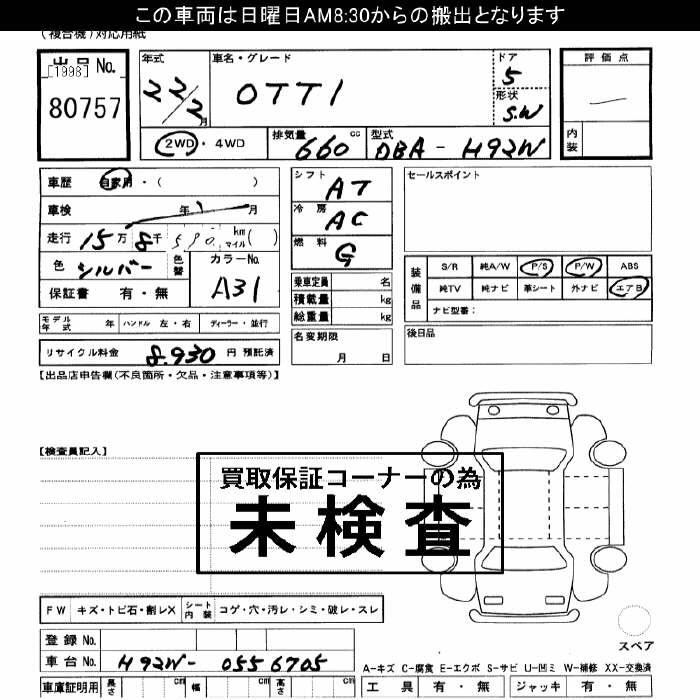 この車両は日曜日AM8:30からの搬出となります
(複合機)対応用紙
出品 No.
[1998]
80757
年式
22/2月
車名・グレード
OTTI
ドア
5
形状
S.W
評価点
内装
2WD・4WD
排気量
660 cc
型式
DBA - H92W
車歴 自家用・( )
車検 年 月
走行 15万 8千 590 km マイル ( )
色 シルバー 色替
カラーNo.
A31
保証書 有・無
シフト
AT
冷房
AC
燃料
G
乗車定員 名
積載量 kg
総重量 kg
セールスポイント
装備品
S/R 純A/W P/S P/W ABS
純TV 純ナビ 革シート 外ナビ エアB
ナビ型番:
モデル年式 年 ハンドル 左・右 ディーラー・並行
名変期限
月 日
後日品
リサイクル料金 8.930 円 預託済
【出品店申告欄(不良箇所・欠品・注意事項等)】
【検査員記入】
買取保証コーナーの為
未検査
FW キズ・トビ石・割レX シート内装 コゲ・穴・汚レ・シミ・破レ・スレ
登録 No.
車台 No. H92W-0556705
車庫証明用 長さ cm 幅 cm 高さ cm
スペア
A-キズ C-腐食 E-エクボ S-サビ U-凹ミ W-補修 XX-交換済
工具 有・無 ジャッキ 有・無